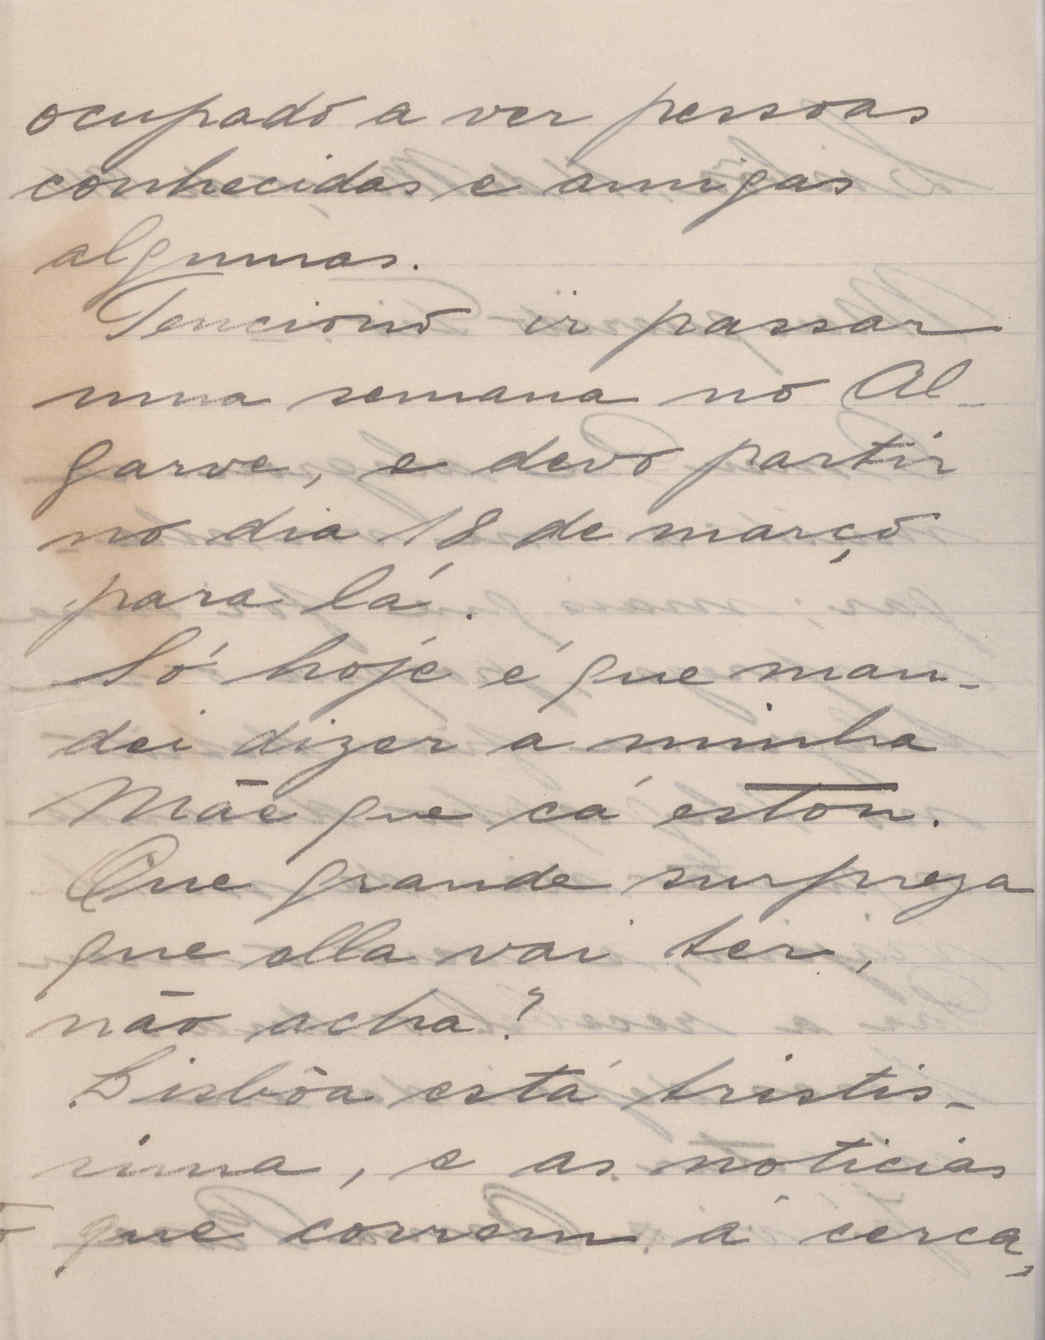 ocupado a ver pessoas
conhecidas e amigas
algumas.
Tenciono ir passar
uma semana no Al-
garve, e devo partir
no dia 18 de março
para lá.
Só hoje é que man-
dei dizer a minha
Mãe que cá estou.
Que grande surpreza
que ella vai ter,
não acha?
Lisbôa está tristis-
sima, e as noticias
que correm á cerca,